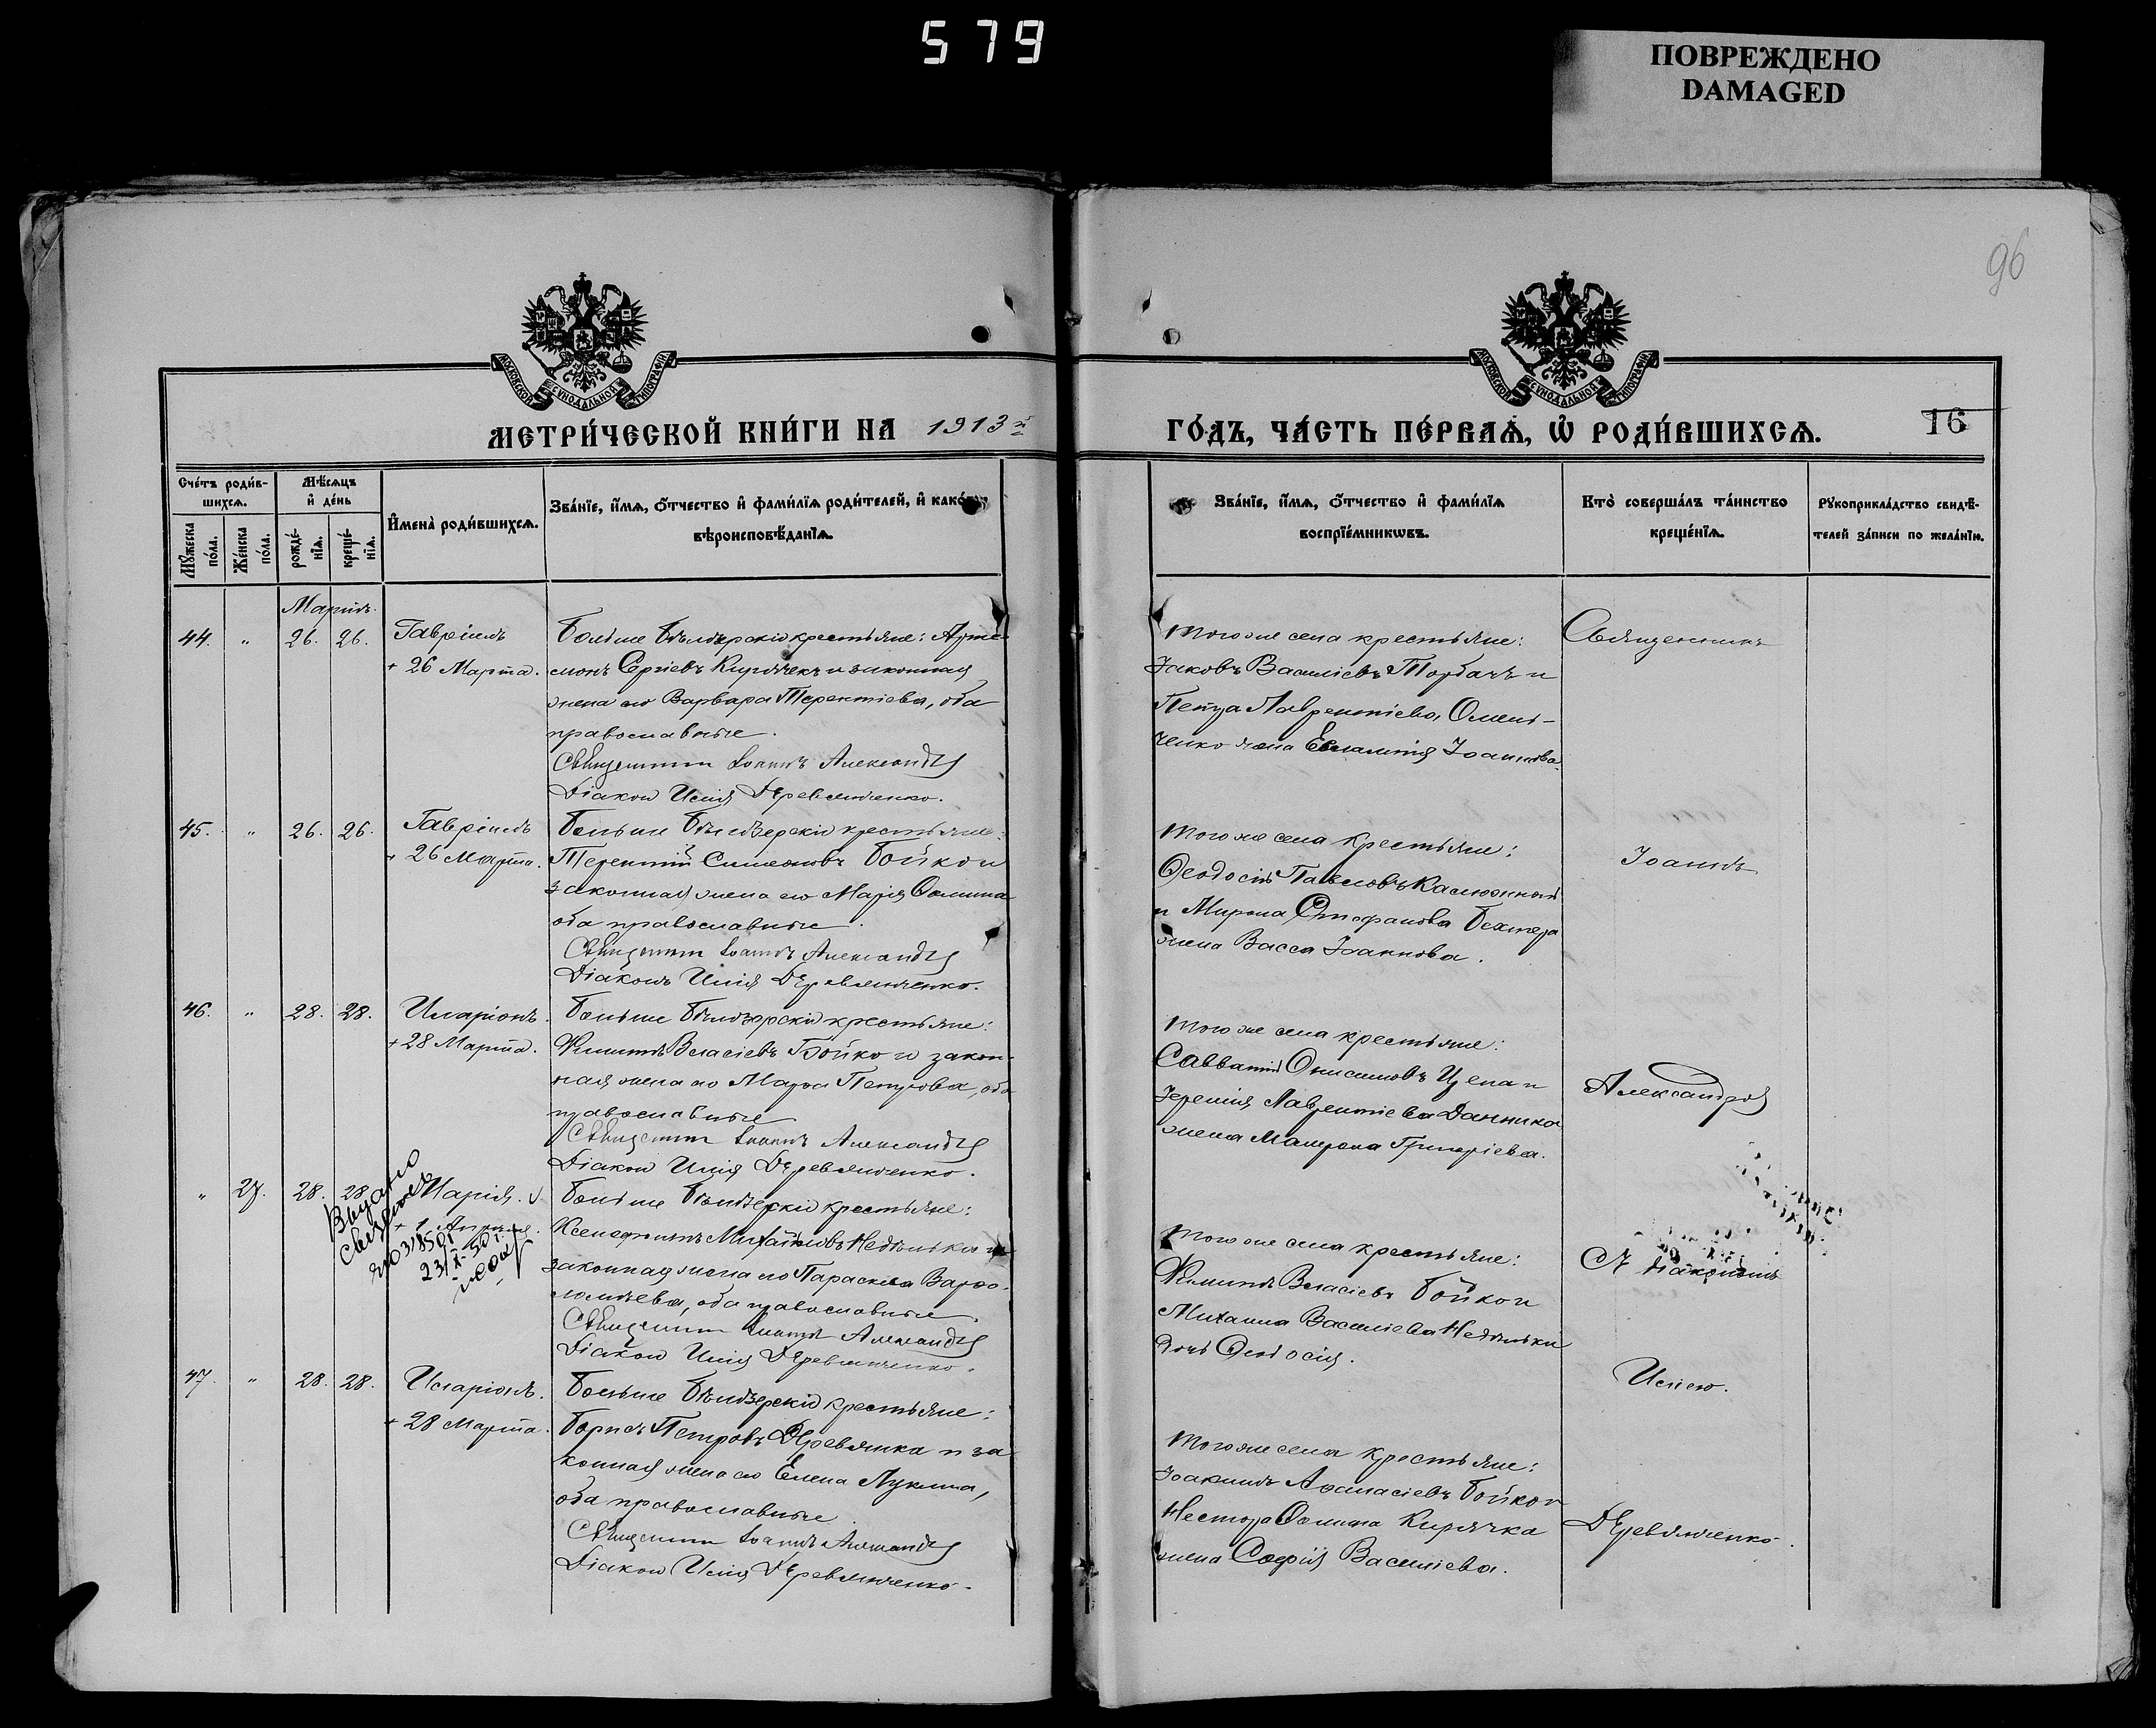 579
ПОВРЕЖДЕНО
DAMAGED
96
МОСКОВСКОЙ СѴНОДАЛЬНОЙ ТИПОГРАФІИ
МОСКОВСКОЙ СѴНОДАЛЬНОЙ ТИПОГРАФІИ
МЕТРИ́ЧЕСКОЙ КНИ́ГИ НА 1913 й
ГО́ДЪ, ЧА́СТЬ ПЕ́РВАѦ, Ѡ҆ РОДИ́ВШИХСѦ.
16
Сче́тъ роди́в-
шихсѧ.
Мꙋ́жеска по́ла.
Же́нска по́ла.
Мѣ́сѧцъ
и҆ де́нь
рожде́-нїѧ.
креще́-нїѧ.
И҆мена̀ роди́вшихсѧ.
Зва́нїе, и҆́мѧ, ѻ҆́тчество и҆ фами́лїѧ роди́телей, и҆ како́гѡ
вѣроисповѣ́данїѧ.
Зва́нїе, и҆́мѧ, ѻ҆́тчество и҆ фами́лїѧ
воспрїе́мникѡвъ.
Кто̀ соверша́лъ та́инство
креще́нїѧ.
Рꙋкоприкла́дство свидѣ́-
телей за́писи по жела́нїю.
Мартъ.
44. " 26. 26. Гавріилъ
+ 26 Марта.
Больше Бѣлозерскіе крестьяне: Арте-
монъ Сергіевъ Кирячекъ и законная
жена его Варвара Терентіева, оба
православные.
Священникъ Іоаннъ Александровъ
Діаконъ Илія Деревянченко.
того же села крестьяне:
Іаковъ Василіевъ Торбачъ и
Петра Лаврентіева Омель-
ченко жена Евлампія Іоаннова.
Священникъ
45. " 26. 26. Гавріилъ
+ 26 Марта.
Больше Бѣлозерскіе крестьяне:
Терентій Симеоновъ Бойко и
законная жена его Марія Ѳомина
оба православные.
Священникъ Іоаннъ Александровъ
Діаконъ Илія Деревянченко.
того же села крестьяне:
Ѳеодосій Павловъ Калюжный
и Мирона Стефанова Бехтера
жена Васса Іоаннова.
Іоаннъ
46. " 28. 28. Иларіонъ.
+ 28 Марта.
Больше Бѣлозерскіе крестьяне:
Филиппъ Власіевъ Бойко и закон-
ная жена его Марѳа Петрова, оба
православные
Священникъ Іоаннъ Александровъ
Діаконъ Илія Деревянченко.
того же села крестьяне:
Савватій Онисимовъ Цепа и
Іереміи Лаврентіева Данника
жена Матрона Григоріева.
Александровъ
" 27. 28. 28. Марія.
+ 1 Апрѣля.
Выдано
свидет.
23/X-50 г.
Больше Бѣлозерскіе крестьяне:
Ксенофонтъ Михайловъ Недѣлька и
законная жена его Параскева Варѳо-
ломѣева, оба православные.
Священникъ Іоаннъ Александровъ
Діаконъ Илія Деревянченко.
того же села крестьяне:
Филиппъ Власіевъ Бойко и
Михаила Василіева Недѣльки
дочь Ѳеодосія.
съ діакономъ
Иліею.
47. " 28. 28. Иларіонъ.
+ 28 Марта.
Больше Бѣлозерскіе крестьяне:
Борисъ Петровъ Деревянка и за-
конная жена его Елена Лукина,
оба православные
Священникъ Іоаннъ Александровъ
Діаконъ Илія Деревянченко.
того же села крестьяне:
Іоакимъ Аѳанасіевъ Бойко и
Нестора Ѳомина Кирячка
жена Софія Василіева.
Деревянченко.